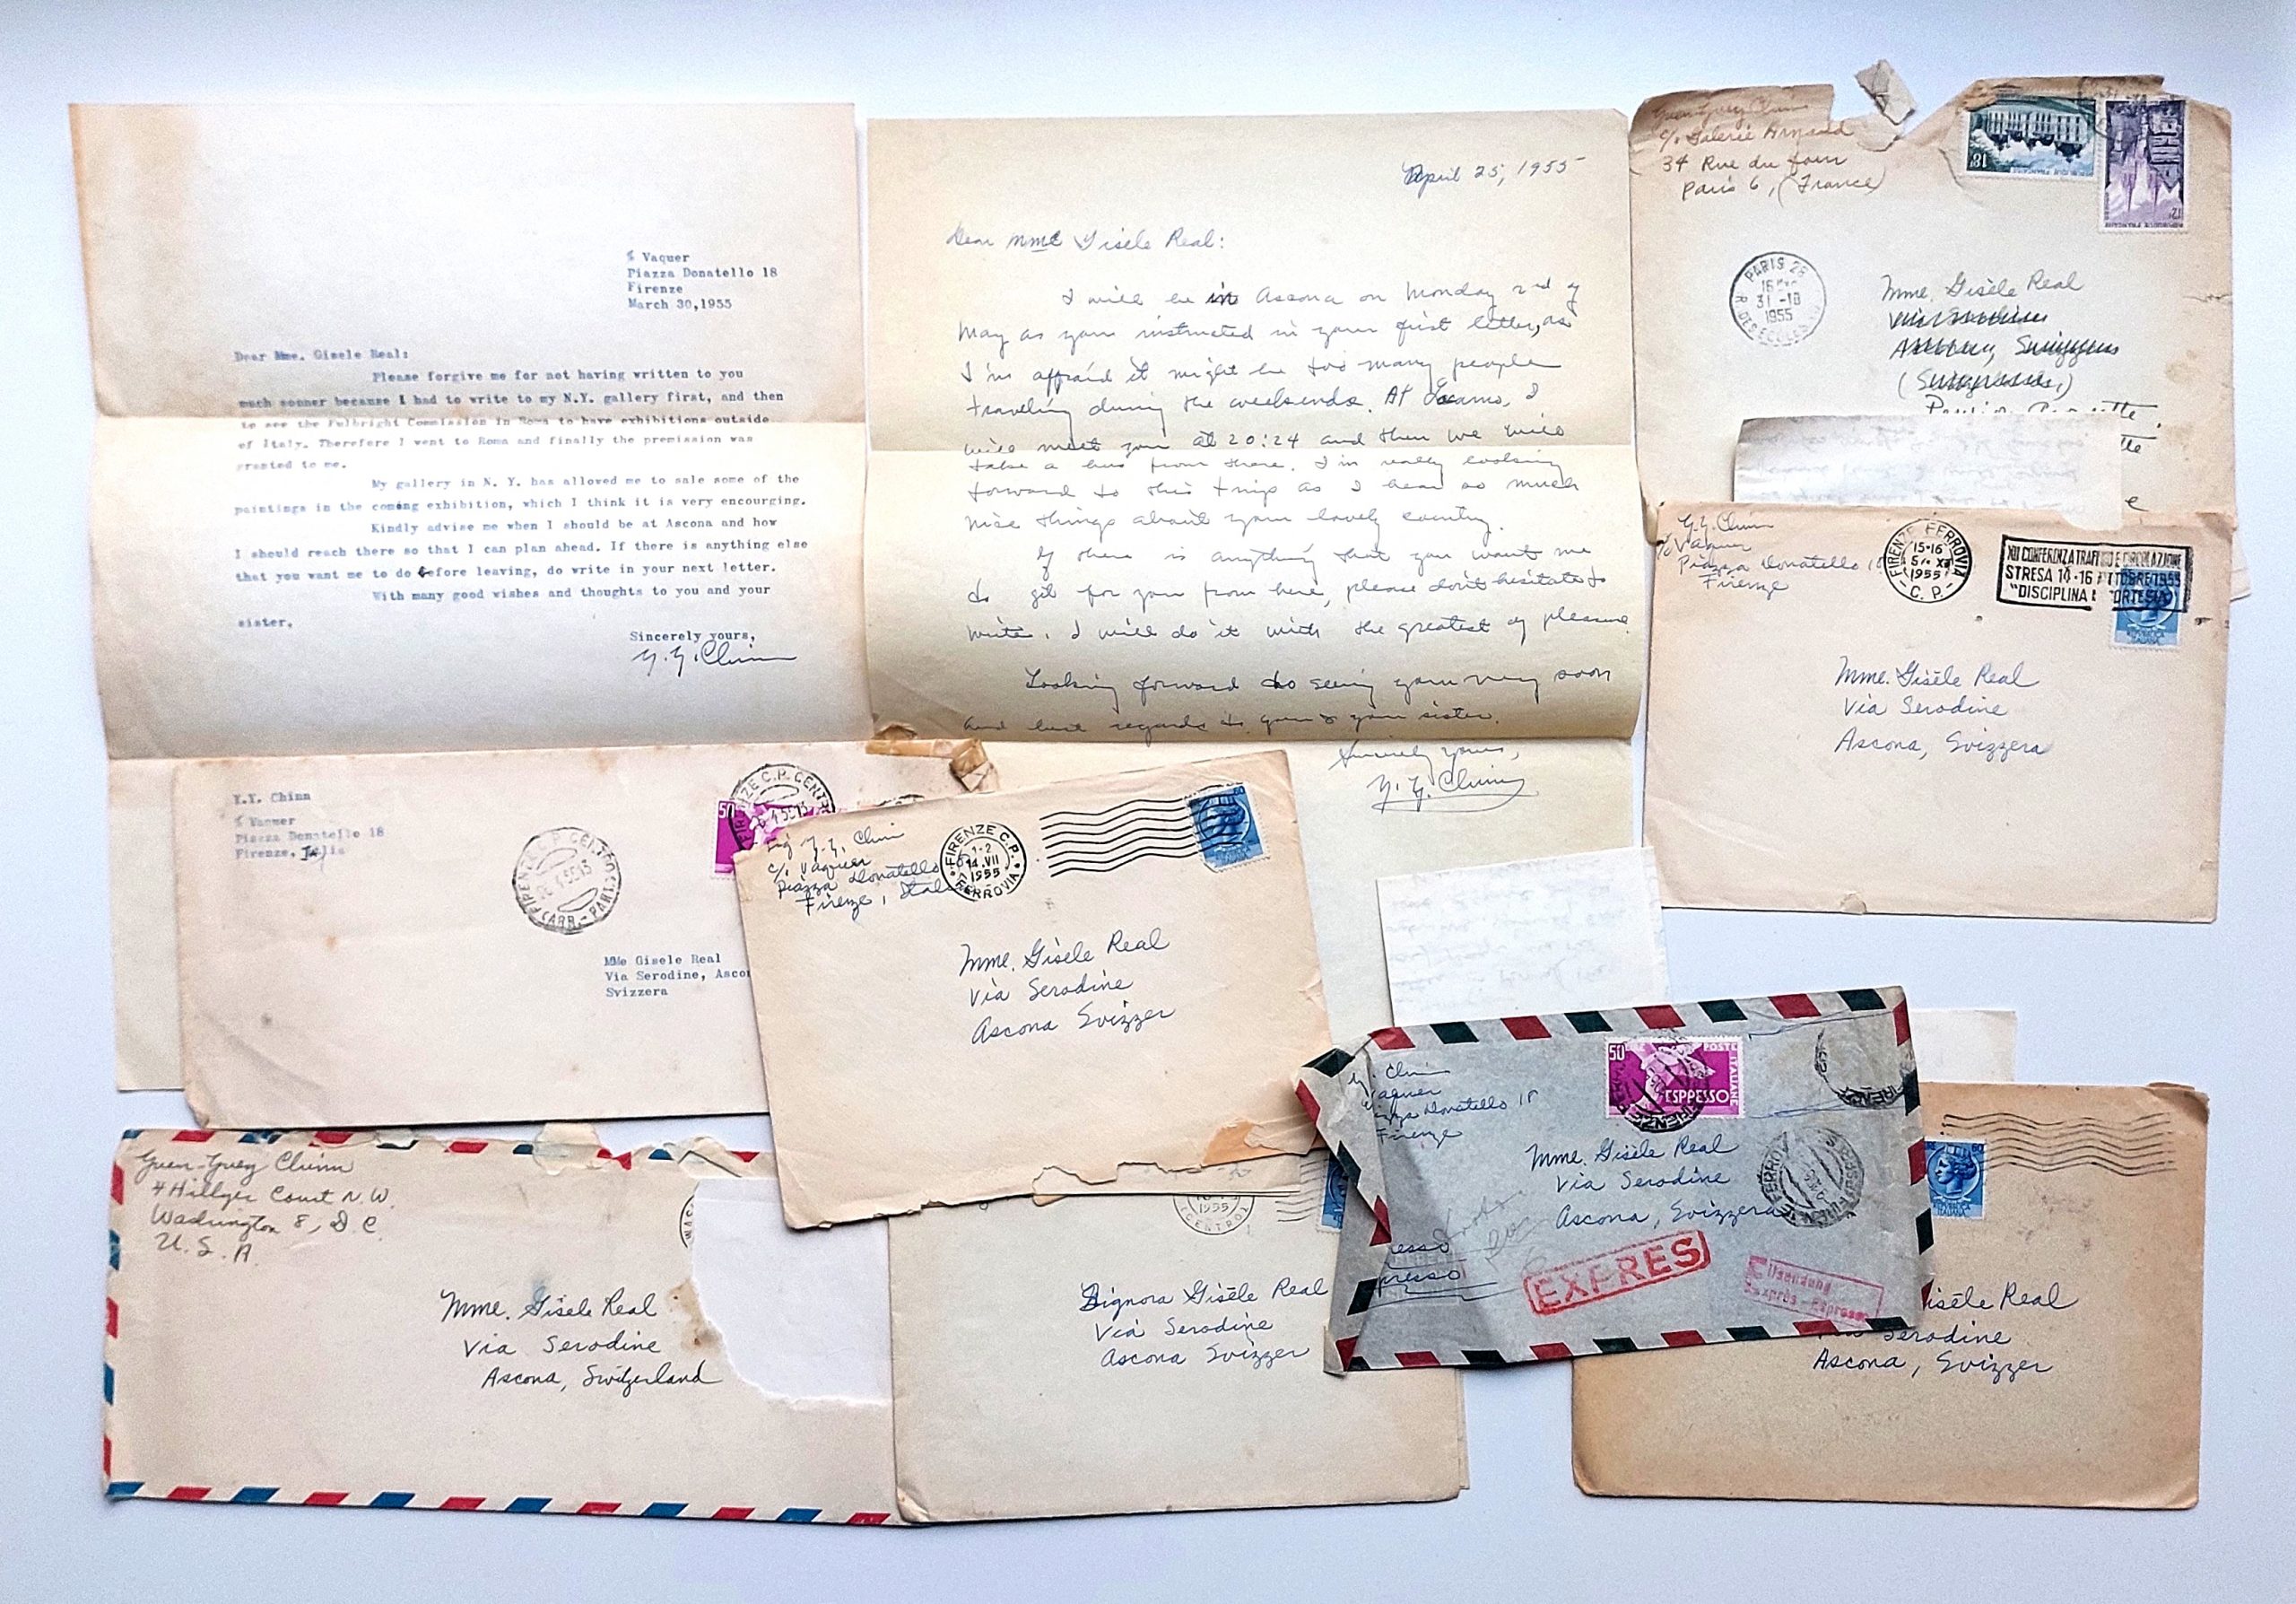 % Vaquer
Piazza Donatello 18
Firenze
March 30,1955
Dear Mme. Gisele Real:
Please forgive me for not having written to you
much sonner because I had to write to my N.Y. gallery first, and then
to see the Fulbright Commission in Roma to have exhibitions outside
of Italy. Therefore I went to Roma and finally the premission was
granted to me.
My gallery in N. Y. has allowed me to sale some of the
paintings in the coming exhibition, which I think it is very encourging.
Kindly advise me when I should be at Ascona and how
I should reach there so that I can plan ahead. If there is anything else
that you want me to do before leaving, do write in your next letter.
With many good wishes and thoughts to you and your
sister.
Sincerely yours,
Y. Y. Chinn
April 25, 1955
Dear Mme Gisèle Real:
I will be in Ascona on Monday 2nd of
May as you instructed in your first letter, as
I'm affraid it might be too many people
traveling during the weekends. At Locarno, I
will meet you at 20:24 and then we will
take a bus from there. I'm really looking
forward to this trip as I hear so much
nice things about your lovely country.
If there is anything that you want me
to get for you from here, please don't hesitate to
write. I will do it with the greatest of pleasure.
Looking forward to seeing you very soon
and best regards to you & your sister.
Sincerely yours,
Y. Y. Chinn
Yuen-Yuey Chinn
c/o Galerie Arnaud
34 Rue du Four
Paris 6, (France)
18F
12F
REPUBLIQUE FRANCAISE
PARIS 26
31-10
1955
Mme. Gisèle Real
Y. Y. Chinn
c/o Vaquer
Piazza Donatello 18
Firenze
FIRENZE FERROVIA
15-16
1955
C. P.
XII CONFERENZA TRAFFICO E CIRCOLAZIONE
STRESA 14-16 OTTOBRE 1955
"DISCIPLINA E CORTESIA"
Mme. Gisèle Real
Via Serodine
Ascona, Svizzera
Y.Y. Chinn
% Vaquer
Piazza Donatello 18
Firenze, Italia
50
FIRENZE C.P. CENTRO
MMe Gisele Real
Via Serodine, Asco
Svizzera
Sig Y. Y. Chinn
c/o Vaquer
Piazza Donatello
Firenze, Ital
FIRENZE C.P.
1-2
14.VII
1955
FERROVIA
60
Mme. Gisèle Real
Via Serodine
Ascona Svizzer
Y. Chinn
Vaquer
Piazza Donatello 18
Firenze
50
POSTE ITALIANE
ESPRESSO
Mme. Gisèle Real
Via Serodine
Ascona, Svizzera
esso
presso
EXPRES
Eilsendung
Exprès - Espresso
Yuen-Yuey Chinn
4 Hillyer Court N.W.
Washington 8, D.C.
U.S.A.
WAS
Mme. Gisèle Real
Via Serodine
Ascona, Switzerland
1955
CENTRO
Signora Gisèle Real
Via Serodine
Ascona Svizzer
60
isèle Real
Via Serodine
Ascona, Svizzer